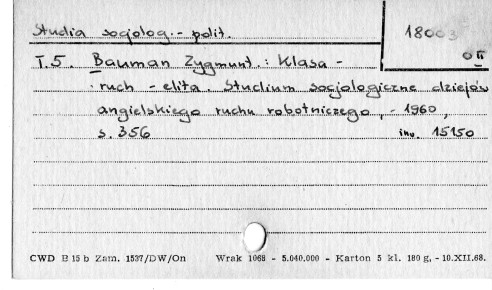 Studia socjolog. - polit.
18003
o II
T.5. Bauman Zygmunt.: Klasa -
ruch - elita. Studium socjologiczne dziejów
angielskiego ruchu robotniczego, - 1960,
s. 356
inw. 15150
CWD B 15 b Zam. 1537/DW/On Wrak 1068 - 5.040.000 - Karton 5 kl. 180 g. - 10.XII.68.